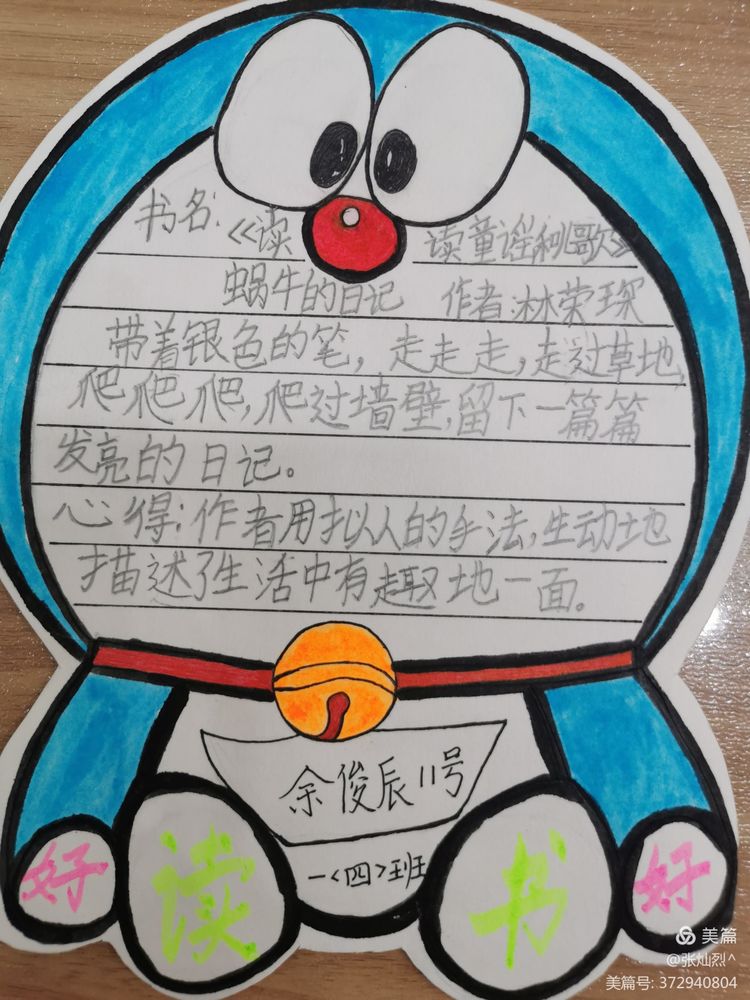 书名:《读读童谣和歌》
蜗牛的日记 作者:林荣琛
带着银色的笔,走走走,走过草地
爬爬爬,爬过墙壁,留下一篇篇
发亮的日记。
心得:作者用拟人的手法,生动地
描述了生活中有趣地一面。
余俊辰11号
一<四>班
好读书好
美篇
@张灿烈^
美篇号: 372940804